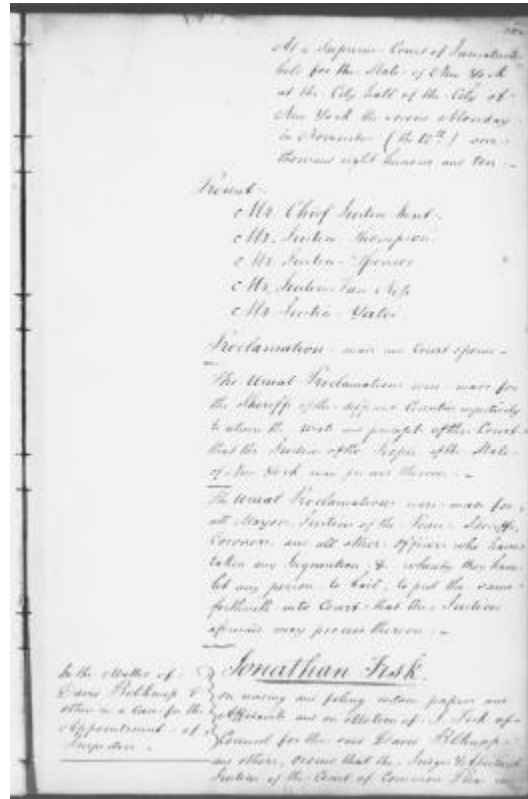 At a Supreme Court of Judicature
held for the State of New York
at the City Hall of the City of
New York the second Monday
in November (the 12th) one
thousand eight hundred and ten
Present
Mr. Chief Justice Kent
Mr. Justice Thompson
Mr. Justice Spencer
Mr. Justice Van Ness
Mr. Justice Yates
Proclamation made and Court opened
The Usual Proclamations were made for
the Sheriffs of the different Counties respectively
to return the writs and precepts of this Court
that the Justices of the People of the State
of New York may proceed thereon
The Usual Proclamations were made for
all Mayors Justices of the Peace Sheriffs
Coroners and all other officers who have
taken any Inquisition & whereby they have
let any person to bail, to put the same
forthwith into Court that the Justices
aforesaid may proceed thereon
Jonathan Fisk
In the Matter of
David Belknap &
others in a Case for the
Appointment of
Inspectors
on reading and filing certain papers and
Affidavits and on Motion of J. Fisk of
Council for the said David Belknap
and others, ordered that the Judges &
Justices of the Court of Common Pleas